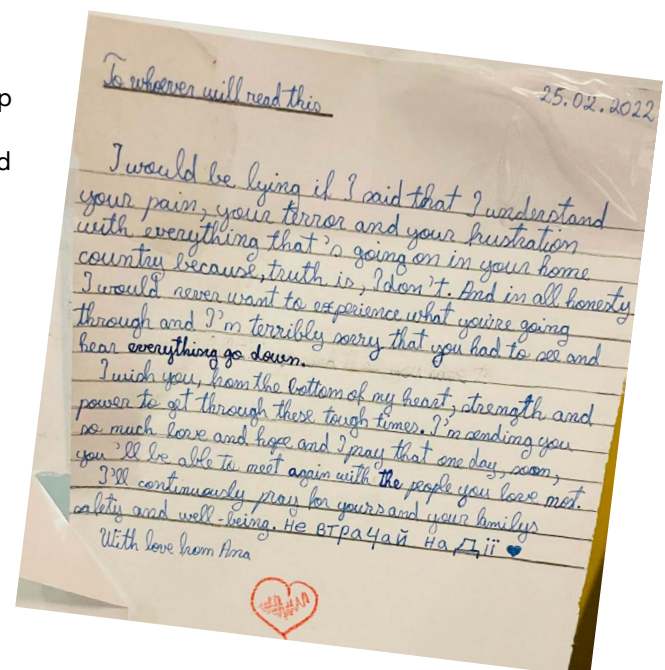 p
d
To whoever will read this
25.02.2022
I would be lying if I said that I understand
your pain, your terror and your frustration
with everything that's going on in your home
country because, truth is, I don't. And in all honesty
I would never want to experience what you're going
through and I'm terribly sorry that you had to see and
hear everything go down.
I wish you, from the bottom of my heart, strength and
power to get through these tough times. I'm sending you
so much love and hope and I pray that one day, soon,
you'll be able to meet again with the people you love most.
I'll continuously pray for yours and your familys
safety and well-being. не втрачай надії
With love from Ana